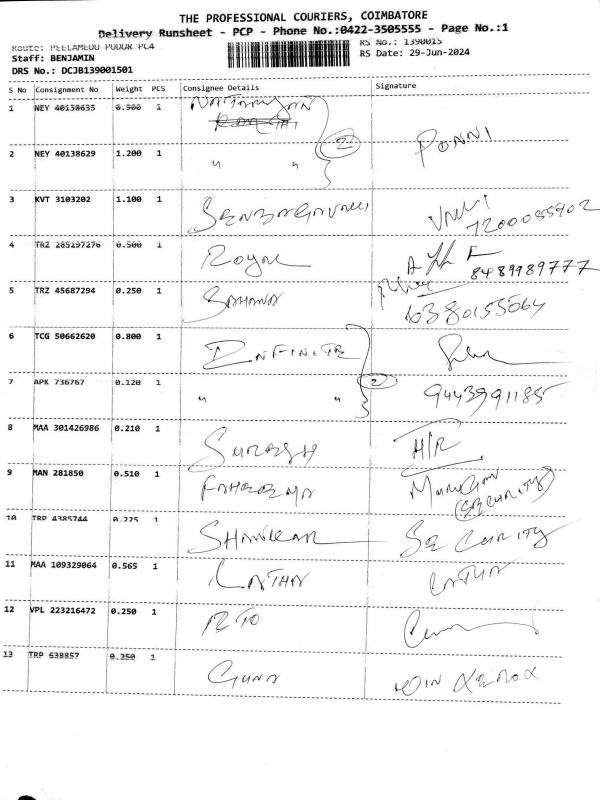 THE PROFESSIONAL COURIERS, COIMBATORE
Delivery Runsheet - PCP - Phone No.:0422-3505555 - Page No.:1
Route: PEELAMEDU PUDUR PC4
RS No.: 1390015
Staff: BENJAMIN
RS Date: 29-Jun-2024
DRS No.: DCJB139001501
S No Consignment No Weight PCS Consignee Details Signature
1 NEY 40138635 0.300 1
2 NEY 40138629 1.200 1 " " 2 PONNI
3 KVT 3103202 1.100 1 VALLI
7200055902
4 TRZ 285197276 0.500 1 ROYAL
8489989777
5 TRZ 45687294 0.250 1 SAHANA 6380155064
6 TCG 50662620 0.800 1 INFINITE
7 APK 736767 0.120 1 " " 2 9443991185
8 MAA 301426986 0.210 1 SURESH H/R
9 MAN 281850 0.510 1 MURUGAN
(SECURITY)
10 TRP 4385744 0.225 1 SHANKAR SECURITY
11 MAA 109329064 0.565 1 LATHA LATHA
12 VPL 223216472 0.250 1 RTO
13 TRP 638857 0.350 1 GUNA WIN XEROX